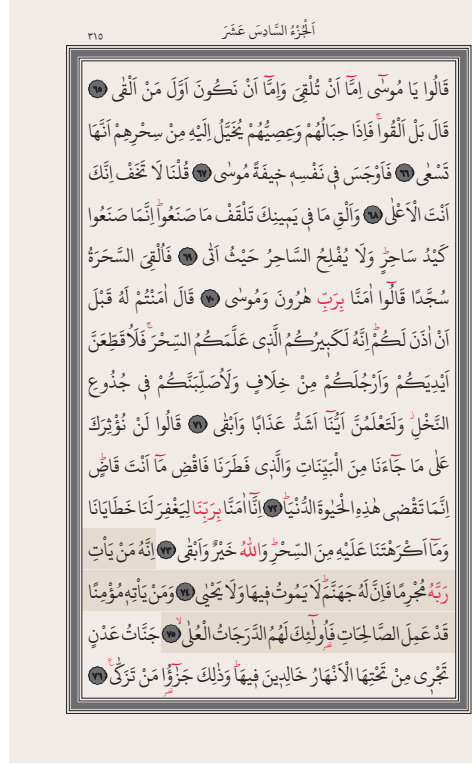 اَلْجُزْءُ السَّادِسَ عَشَرَ
٣١٥
قَالُوا يَا مُوسٰٓى اِمَّٓا اَنْ تُلْقِيَ وَاِمَّٓا اَنْ نَكُونَ اَوَّلَ مَنْ اَلْقٰى ﴿٦٥﴾
قَالَ بَلْ اَلْقُواۚ فَاِذَا حِبَالُهُمْ وَعِصِيُّهُمْ يُخَيَّلُ اِلَيْهِ مِنْ سِحْرِهِمْ اَنَّهَا
تَسْعٰى ﴿٦٦﴾ فَاَوْجَسَ فٖي نَفْسِهٖ خٖيفَةً مُوسٰى ﴿٦٧﴾ قُلْنَا لَا تَخَفْ اِنَّكَ
اَنْتَ الْاَعْلٰى ﴿٦٨﴾ وَاَلْقِ مَا فٖي يَمٖينِكَ تَلْقَفْ مَا صَنَعُواۜ اِنَّمَا صَنَعُوا
كَيْدُ سَاحِرٍۜ وَلَا يُفْلِحُ السَّاحِرُ حَيْثُ اَتٰى ﴿٦٩﴾ فَاُلْقِيَ السَّحَرَةُ
سُجَّدًا قَالُٓوا اٰمَنَّا بِرَبِّ هٰرُونَ وَمُوسٰى ﴿٧٠﴾ قَالَ اٰمَنْتُمْ لَهُ قَبْلَ
اَنْ اٰذَنَ لَكُمْۜ اِنَّهُ لَكَبٖيرُكُمُ الَّذٖي عَلَّمَكُمُ السِّحْرَۚ فَلَاُقَطِّعَنَّ
اَيْدِيَكُمْ وَاَرْجُلَكُمْ مِنْ خِلَافٍ وَلَاُصَلِّبَنَّكُمْ فٖي جُذُوعِ
النَّخْلِۘ وَلَتَعْلَمُنَّ اَيُّنَٓا اَشَدُّ عَذَابًا وَاَبْقٰى ﴿٧١﴾ قَالُوا لَنْ نُؤْثِرَكَ
عَلٰى مَا جَٓاءَنَا مِنَ الْبَيِّنَاتِ وَالَّذٖي فَطَرَنَا فَاقْضِ مَٓا اَنْتَ قَاضٍۜ
اِنَّمَا تَقْضٖي هٰذِهِ الْحَيٰوةَ الدُّنْيَاۜ ﴿٧٢﴾ اِنَّٓا اٰمَنَّا بِرَبِّنَا لِيَغْفِرَ لَنَا خَطَايَانَا
وَمَٓا اَكْرَهْتَنَا عَلَيْهِ مِنَ السِّحْرِۜ وَاللّٰهُ خَيْرٌ وَاَبْقٰى ﴿٧٣﴾ اِنَّهُ مَنْ يَأْتِ
رَبَّهُ مُجْرِمًا فَاِنَّ لَهُ جَهَنَّمَۜ لَا يَمُوتُ فٖيهَا وَلَا يَحْيٰى ﴿٧٤﴾ وَمَنْ يَأْتِهٖ مُؤْمِنًا
قَدْ عَمِلَ الصَّالِحَاتِ فَاُو۬لٰٓئِكَ لَهُمُ الدَّرَجَاتُ الْعُلٰىۙ ﴿٧٥﴾ جَنَّاتُ عَدْنٍ
تَجْرٖي مِنْ تَحْتِهَا الْاَنْهَارُ خَالِدٖينَ فٖيهَاۜ وَذٰلِكَ جَزٰٓؤُ۬ا مَنْ تَزَكّٰىۚ ﴿٧٦﴾